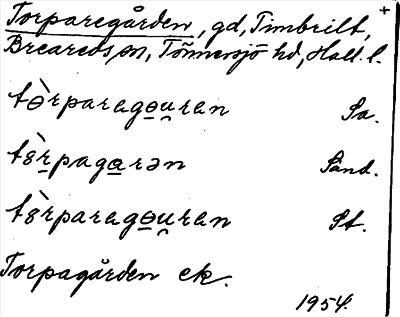 Torparegården, gd, Timbrilt, +
Breareds sn, Tönnersjö hd, Hall. l.
tɵ̀rparagɵu̯ran Sa.
tȣ̀rpagarən Sand.
tȣ̀rparagɵu̯ran St.
Torpagården ek.
1954.